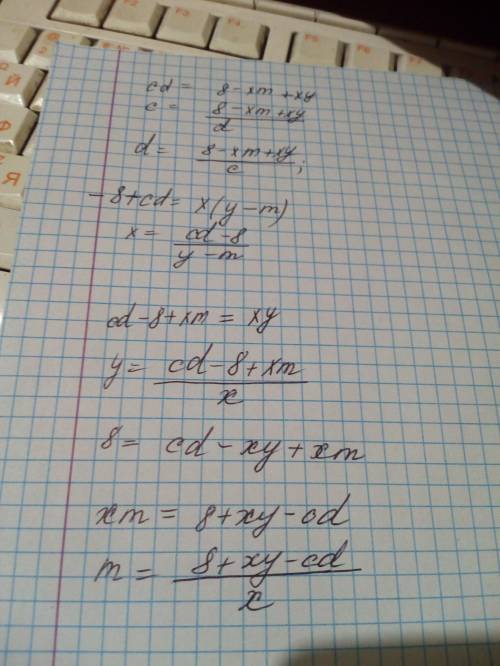 cd = 8 - xm + xy
c = (8 - xm + xy)/d
d = (8 - xm + xy)/c;
-8 + cd = x(y - m)
x = (cd - 8)/(y - m)
cd - 8 + xm = xy
y = (cd - 8 + xm)/x
8 = cd - xy + xm
xm = 8 + xy - cd
m = (8 + xy - cd)/x
F2
F3
F4
F5
F6
F7
Й
Ф
Я